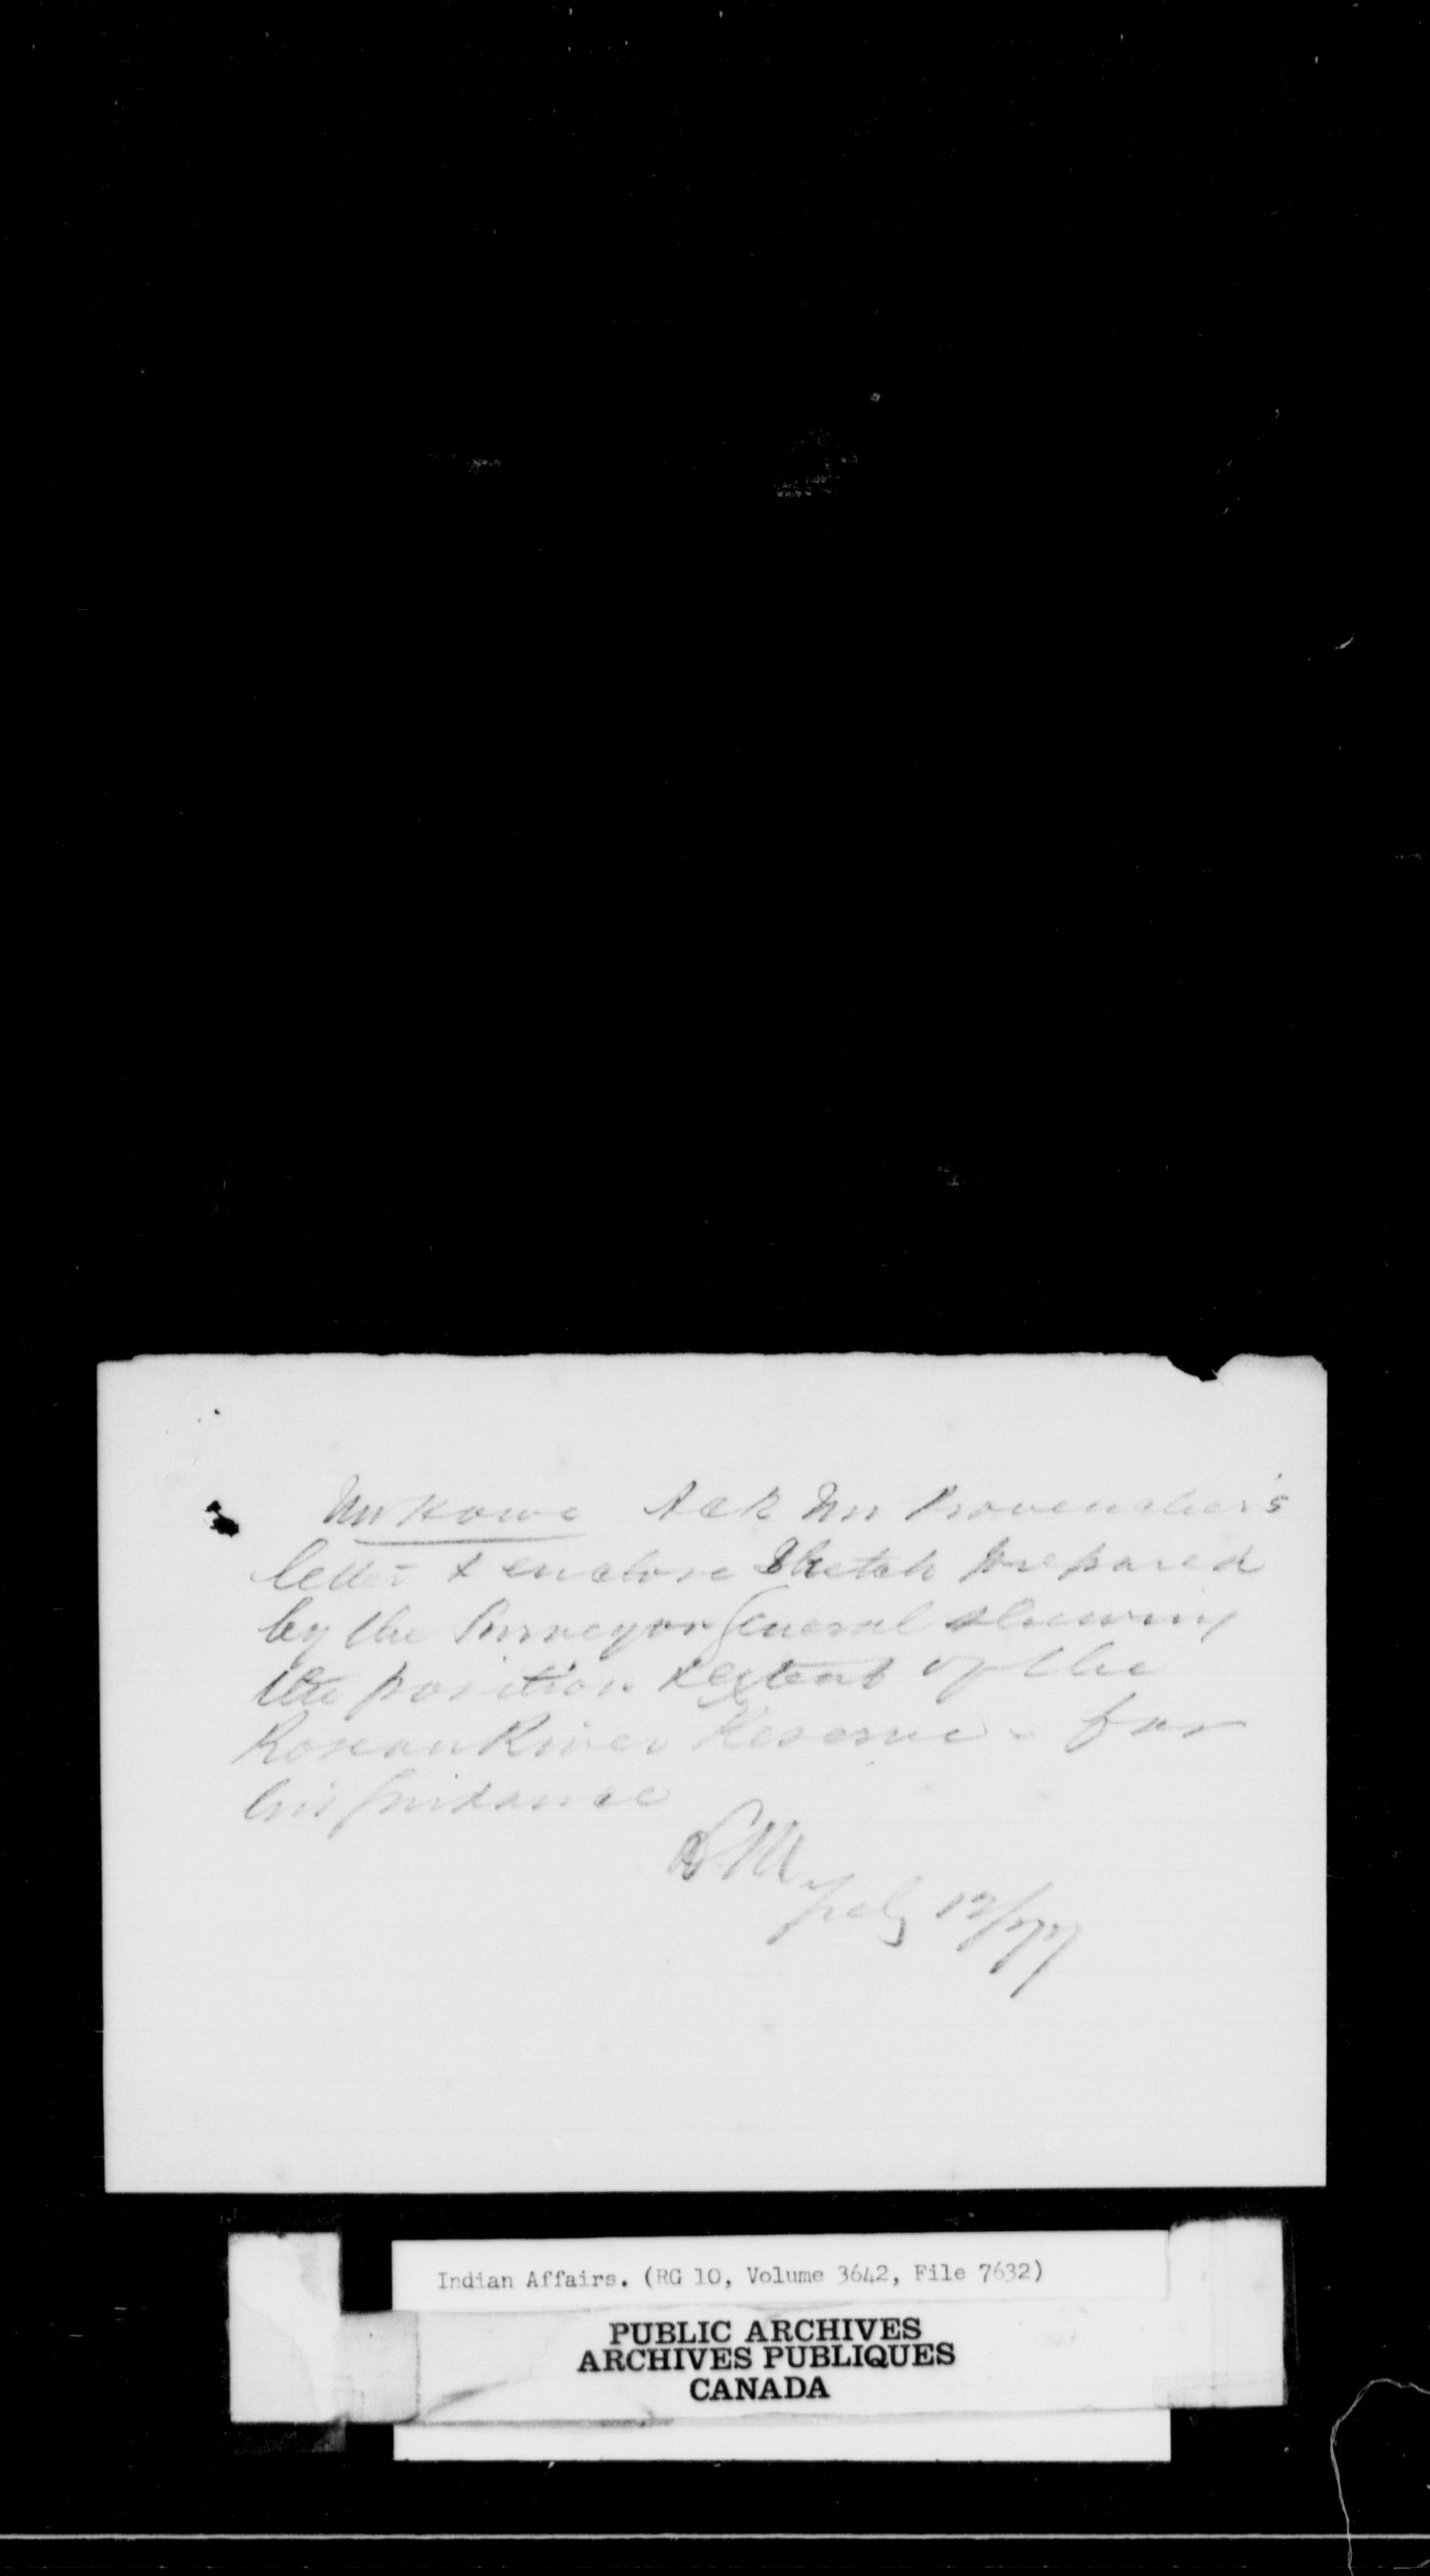 Mr Rowe Ack Mr Provencher's
letter & enclose Sketch prepared
by the Surveyor General shewing
the position & extent of the
Roseau River Reserve - for
his guidance
July 12/77
Indian Affairs. (RG 10, Volume 3642, File 7632)
PUBLIC ARCHIVES
ARCHIVES PUBLIQUES
CANADA